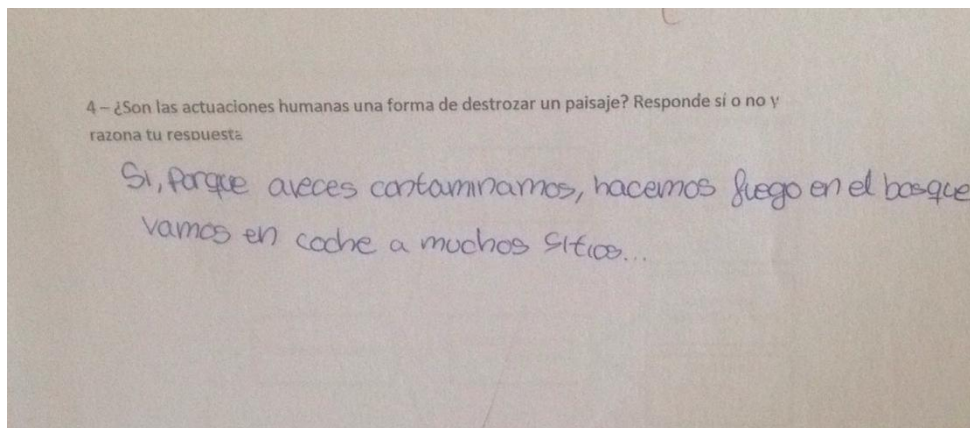 4 – ¿Son las actuaciones humanas una forma de destrozar un paisaje? Responde sí o no y
razona tu respuesta
Si, porque aveces contaminamos, hacemos fuego en el bosque
vamos en coche a muchos sitios...